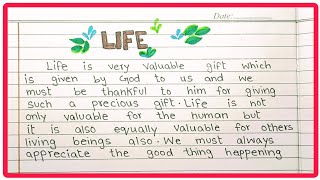 Date:
LIFE
Life is very valuable gift which
is given by God to us and we
must be thankful to him for giving
such a precious gift. Life is not
only valuable for the human but
it is also equally valuable for others
living beings also. We must always
appreciate the good thing happening